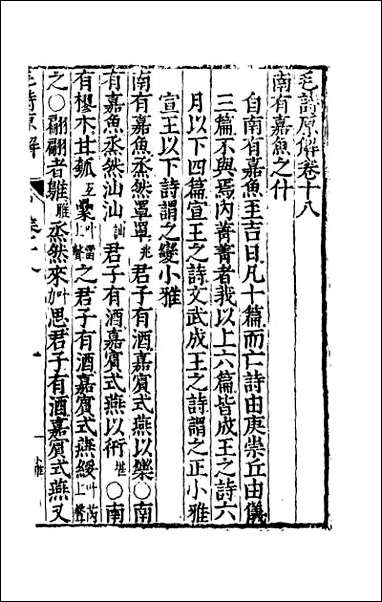 毛詩原解卷十八
南有嘉魚之什
自南有嘉魚至吉日凡十篇而亡詩由庚崇丘由儀
三篇不與焉內菁菁者我以上六篇皆成王之詩六
月以下四篇宣王之詩文武成王之詩謂之正小雅
宣王以下詩謂之變小雅
南有嘉魚烝然罩罩兆君子有酒嘉賓式燕以樂〇南
有嘉魚烝然汕汕訕君子有酒嘉賓式燕以衎堪〇南
有樛木甘瓠互纍叶雷上聲之君子有酒嘉賓式燕綏叶芮上聲
之〇翩翩者鵻雖烝然來叶思君子有酒嘉賓式燕又
毛詩原解
一
小雅